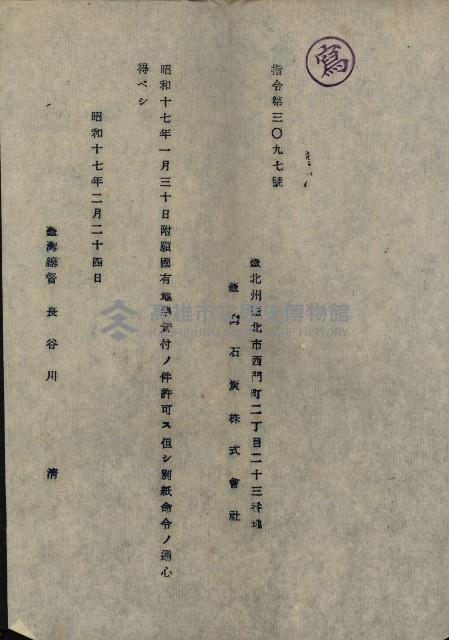 寫
指令第三〇九七號
臺北州臺北市西門町二丁目二十三番地
臺灣石炭株式會社
昭和十七年一月三十日附願國有地 貸付ノ件許可ス但シ別紙命令ノ通心
得ベシ
昭和十七年二月二十四日
臺灣總督 長谷川 清
高雄市立歷史博物館
KAOHSIUNG MUSEUM OF HISTORY